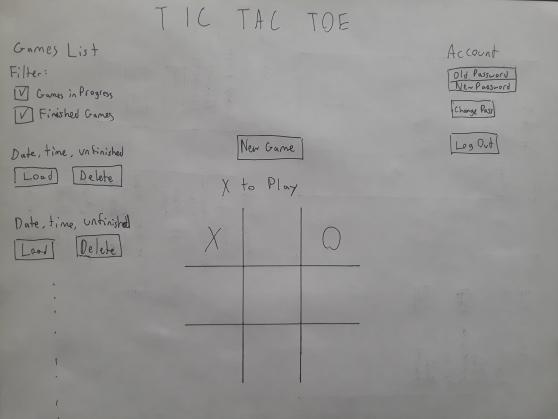 TIC TAC TOE
Games List
Filter:
Games in Progress
Finished Games
Date, time, unfinished
Load Delete
Date, time, unfinished
Load Delete
New Game
X to Play
X O
Account
Old Password
New Password
Change Pass
Log Out